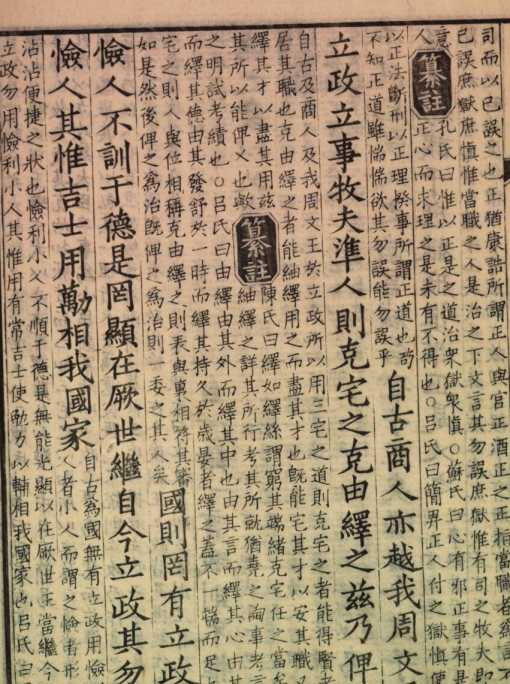 司而以已誤之也正猶康誥所謂正人與官正酒正之正指當職者為言不
已誤庶獄庶慎惟當職之人是治之下文言其勿誤庶獄惟有司之牧夫即
意纂註孔氏曰惟以正是之道治衆獄衆慎○蘇氏曰心有邪正事有是
人正心而求理之是未有不得也○呂氏曰簡畀正人付之獄慎使
以正法斷刑以正理揆事所謂正道也尚
不知正道雖惴惴欲其勿誤能勿誤乎
自古商人亦越我周文
立政立事牧夫準人則克宅之克由繹之茲乃俾
自古及商人及我周文王於立政所以用三宅之道則克宅之者能得賢者
居其職也克由繹之者能紬繹用之而盡其才也既能宅其才以安其職又
繹其才以盡其用茲纂註陳氏曰繹如繹絲謂窮其端緒克宅任之當矣
其所以能俾乂也歟紬繹之詳其所行考其所就猶堯之詢事考言
之明試考績也○呂氏曰由繹由其外而繹其中也由其言而繹其心由其
而繹其德由其發舒於一時而繹其持久於歲晏者繹之蓋不一端而足
宅之則人與位相稱克由繹之則表與裏相符其審
如是然後俾之為治既俾之為治則一委之其人矣
國則罔有立政
憸人不訓于德是罔顯在厥世繼自今立政其勿
憸人其惟吉士用勱相我國家
自古為國無有立政用憸
人者小人而謂之憸者形
沾沾便捷之狀也憸利小人不順于德是無能光顯以在厥世王當繼今
立政勿用憸利小人其惟用有常吉士使勉力以輔相我國家也呂氏曰